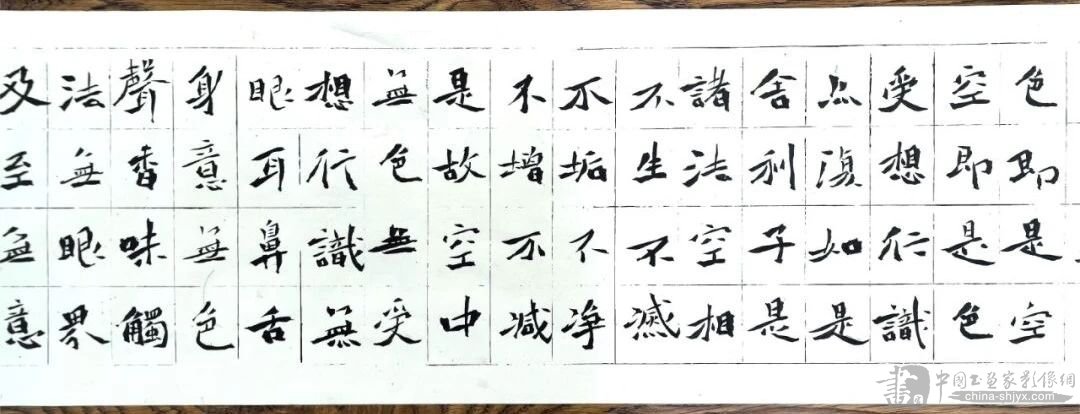 色即是空
空即是色
受想行识
亦復如是
舍利子是
諸法空相
不生不滅
不垢不净
不增不减
是故空中
無色無受
想行識無
眼耳鼻舌
身意無色
聲香味觸
法無眼界
及至無意
書 中國书画家影像網
china-shjyx.com